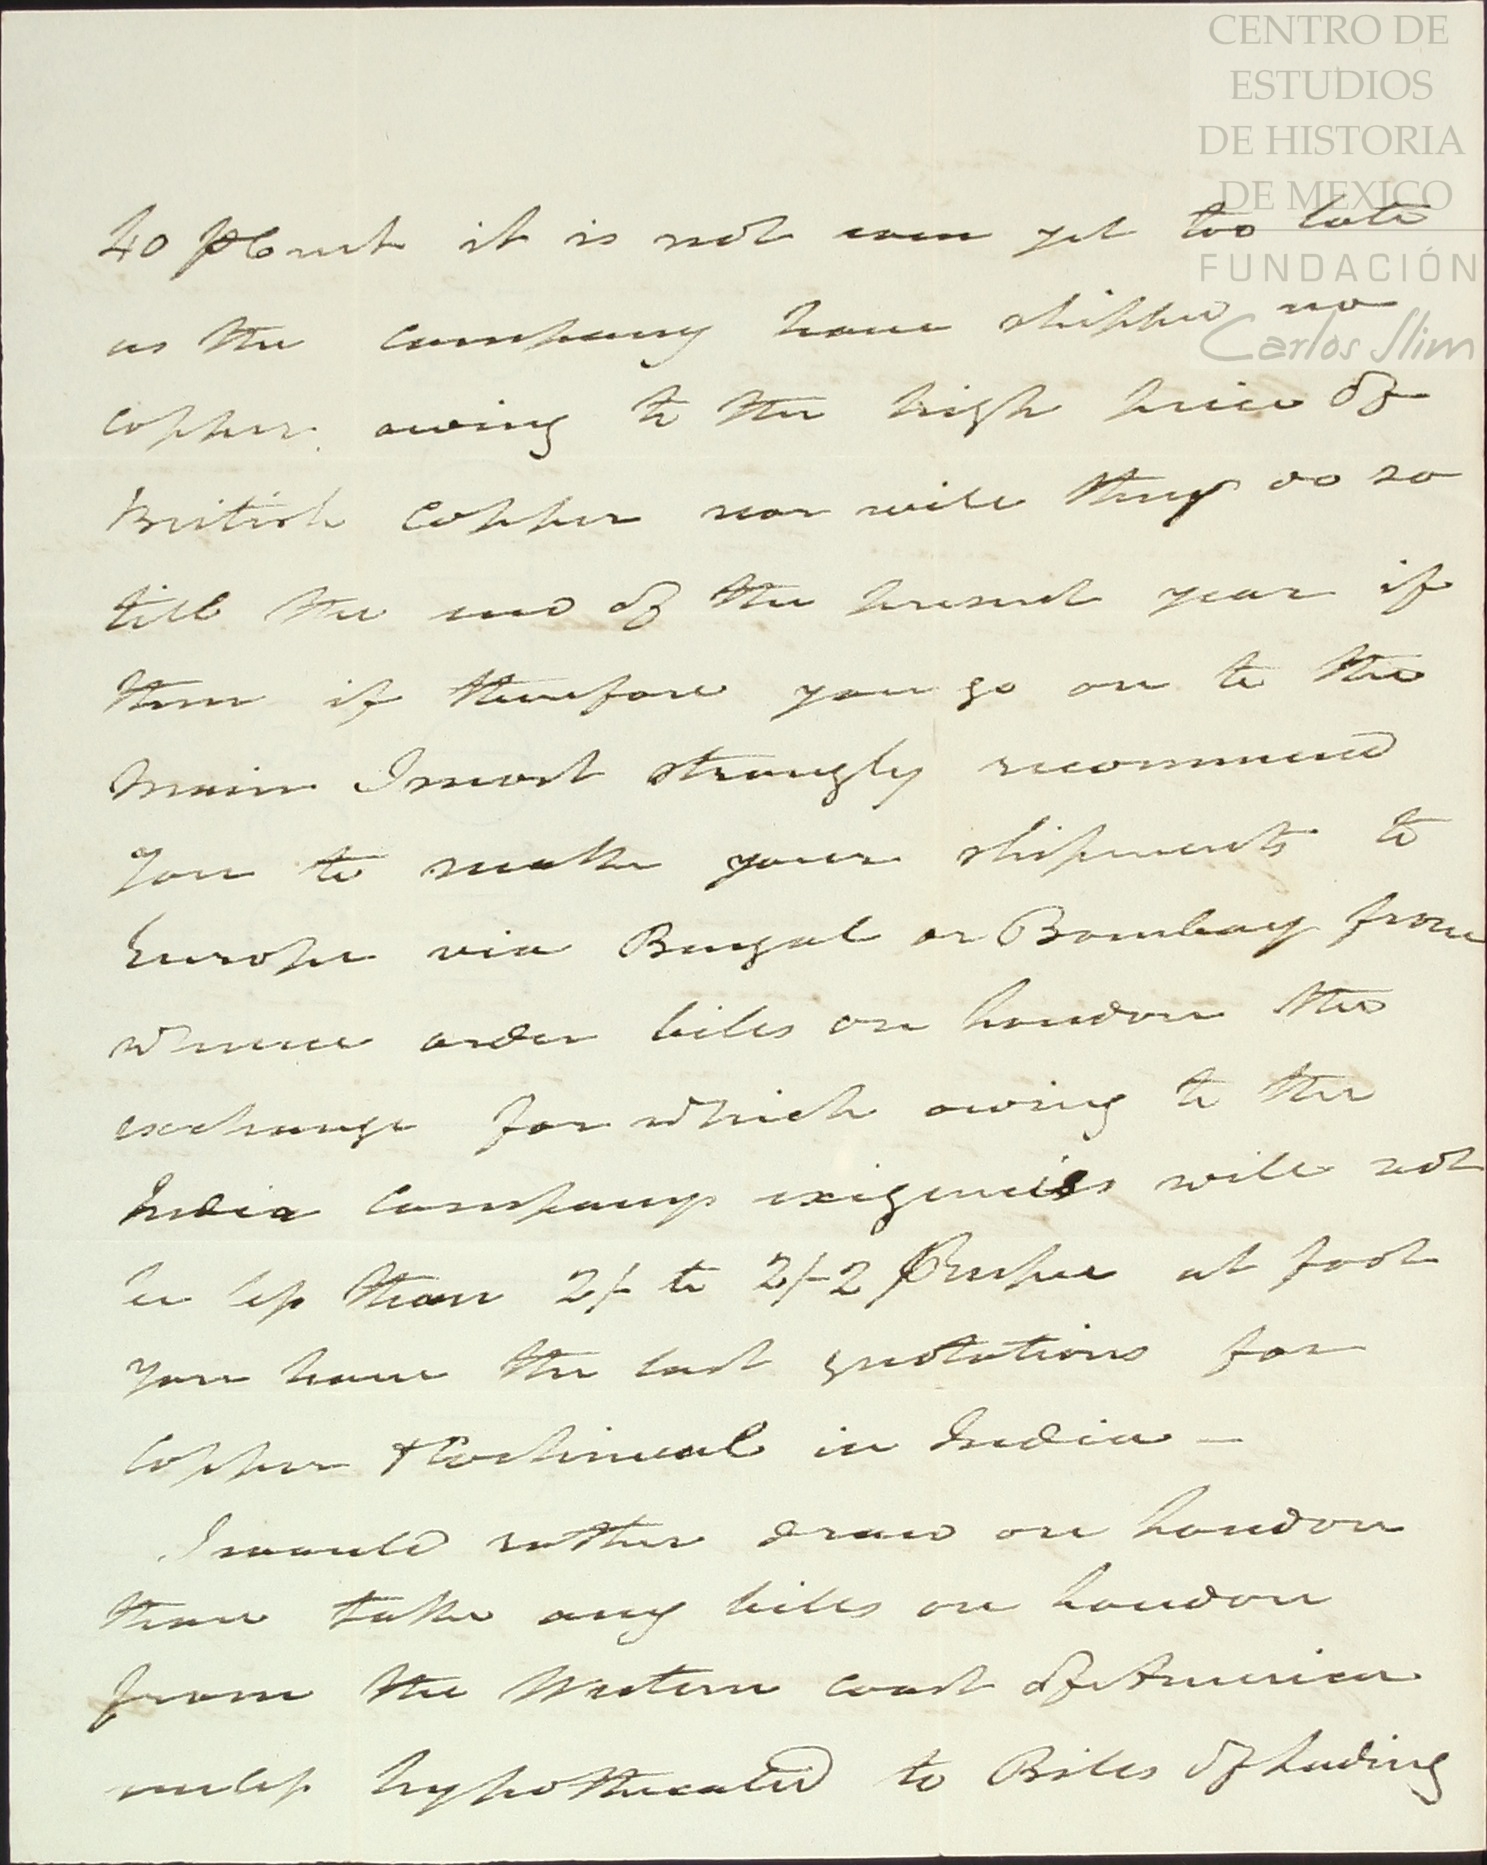 CENTRO DE
ESTUDIOS
DE HISTORIA
DE MEXICO
FUNDACIÓN
Carlos Slim
40 P Cent it is not even yet too late
as the company have shipped no
copper owing to the high price of
British Copper nor will they do so
till the end of the present year if
then if therefore you go on to the
Main I most strongly recommend
you to make your shipments to
Europe via Bengal or Bombay from
whence order bills on London the
exchange for which owing to the
India Companys exigencies will not
be less than 2/- to 2/-2 P Rupee at foot
you have the last quotations for
Copper & Cochineal in India —
I would rather draw on London
than take any bills on London
from the Western coast of America
unless hypothecated to Bills of Lading